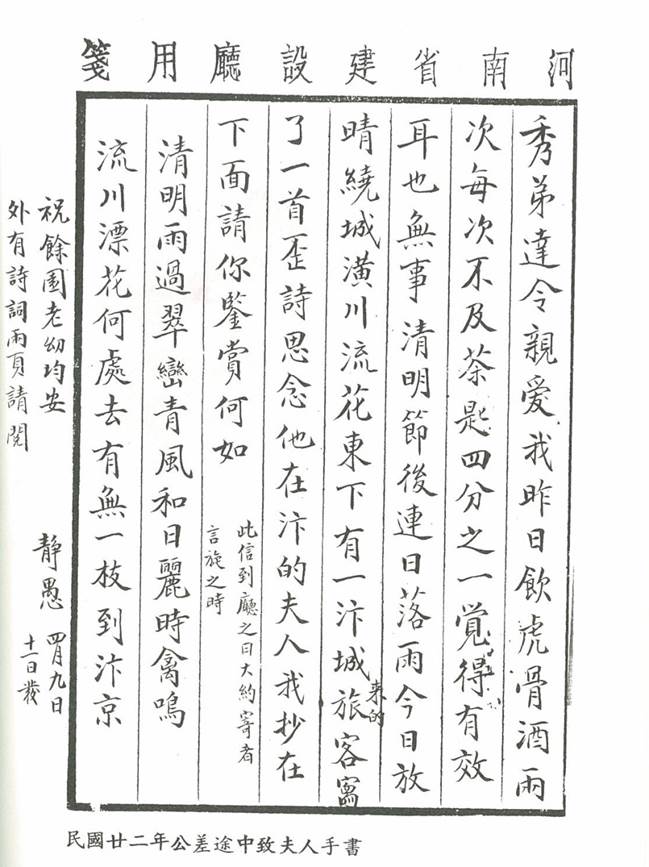 河南省建設廳用箋
秀弟達令親愛我昨日飲虎骨酒兩
次每次不及茶匙四分之一覺得有效
耳也無事清明節後連日落雨今日放
晴繞城潢川流花東下有一汴城来的旅客寫
了一首歪詩思念他在汴的夫人我抄在
下面請你鑒賞何如
此信到廳之日大約寄者
言旋之時
清明雨過翠巒青風和日麗時禽鳴
流川漂花何處去有無一枝到汴京
祝餘園老幼均安
外有詩詞兩頁請閱
靜愚
四月九日
十一日發
民國廿二年公差途中致夫人手書